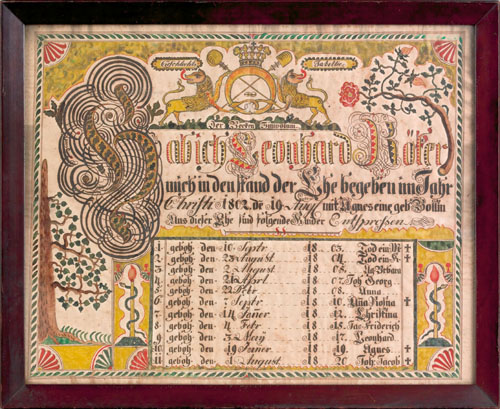 Geschlechts Tabelle
Habich Leonhard
mich in den stand der Ehe begeben im Jahr
Christi 1802 de 19 mit Agnes eine geb
Aus dieser Ehe sind folgende Kinder Entsprossen
1 geboh den 10 Septr 18 03. Tod ein
2 geboh den 23 August 18 04. Tod ein
3 geboh den 2 August 18 05.
4 geboh den Aprl 18 07. Joh Georg
5 geboh den 18 08. Anna
6 geboh den Septr 18 10. Rosina
7 geboh den 14 Janer 18 12. Christina
8 geboh den 4 Febr 18 15. Jac Friderich
9 geboh den 3 May 18 17. Leonhard
10 geboh den 19 Janer 18 19. Agnes
11 geboh den 1 August 18 20. Joh. Jacob